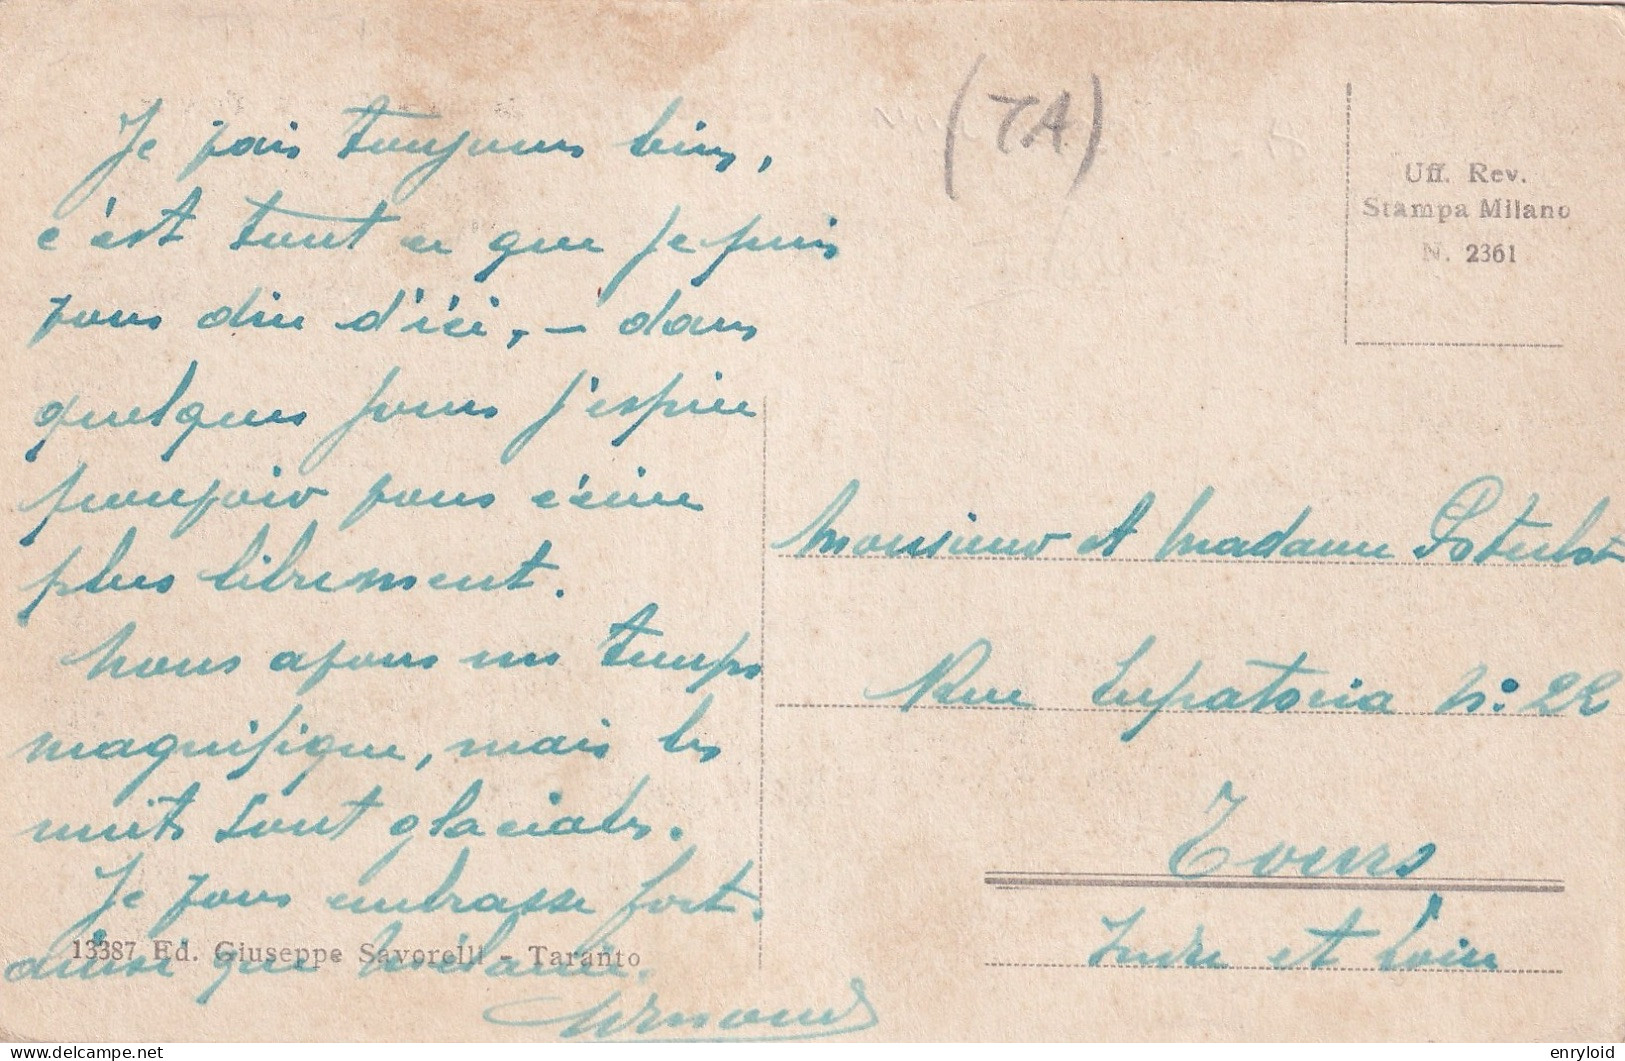 Je vais toujours bien,
c'est tout ce que je puis
vous dire d'ici, – dans
quelques jours j'espère
pouvoir vous écrire
plus librement.
Nous avons un temps
magnifique, mais les
nuits sont glaciales.
Je vous embrasse fort.
ainsi que
Armand
(TA)
Uff. Rev.
Stampa Milano
N. 2361
Monsieur et Madame
Rue Eupatoria N: 22
Tours
Indre et Loire
13387 Ed. Giuseppe Savorelli - Taranto
enryloid
delcampe.net